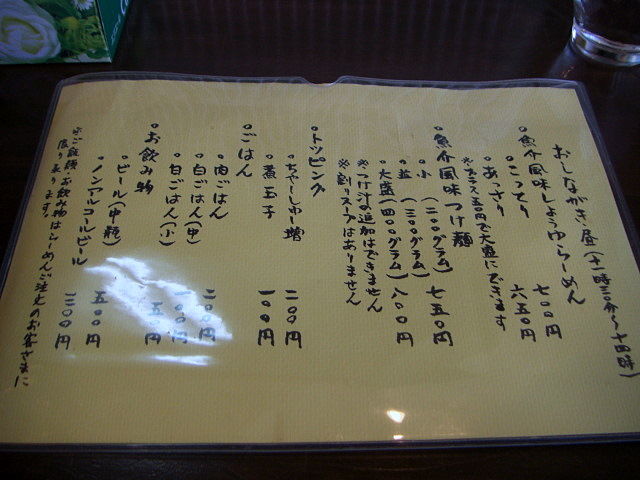 おしながき・昼(十一時三〇分〜十四時)
魚介風味しょうゆらーめん
こってり 七〇〇円
あっさり 六五〇円
※プラス五〇円で大盛にできます
魚介風味つけ麺
小(二〇〇グラム) 七五〇円
並(三〇〇グラム)
大盛(四〇〇グラム) 八〇〇円
※つけ汁の追加はできません
※割りスープはありません
トッピング
ちゃーしゅー増 二〇〇円
煮玉子 一〇〇円
ごはん
肉ごはん 二〇〇円
白ごはん(中)
白ごはん(小) 一〇〇円
お飲み物
ビール(中瓶) 五〇〇円
ノンアルコールビール 三〇〇円
※ご飯類、お飲み物はらーめんご注文のお客さまに
限り承ります。